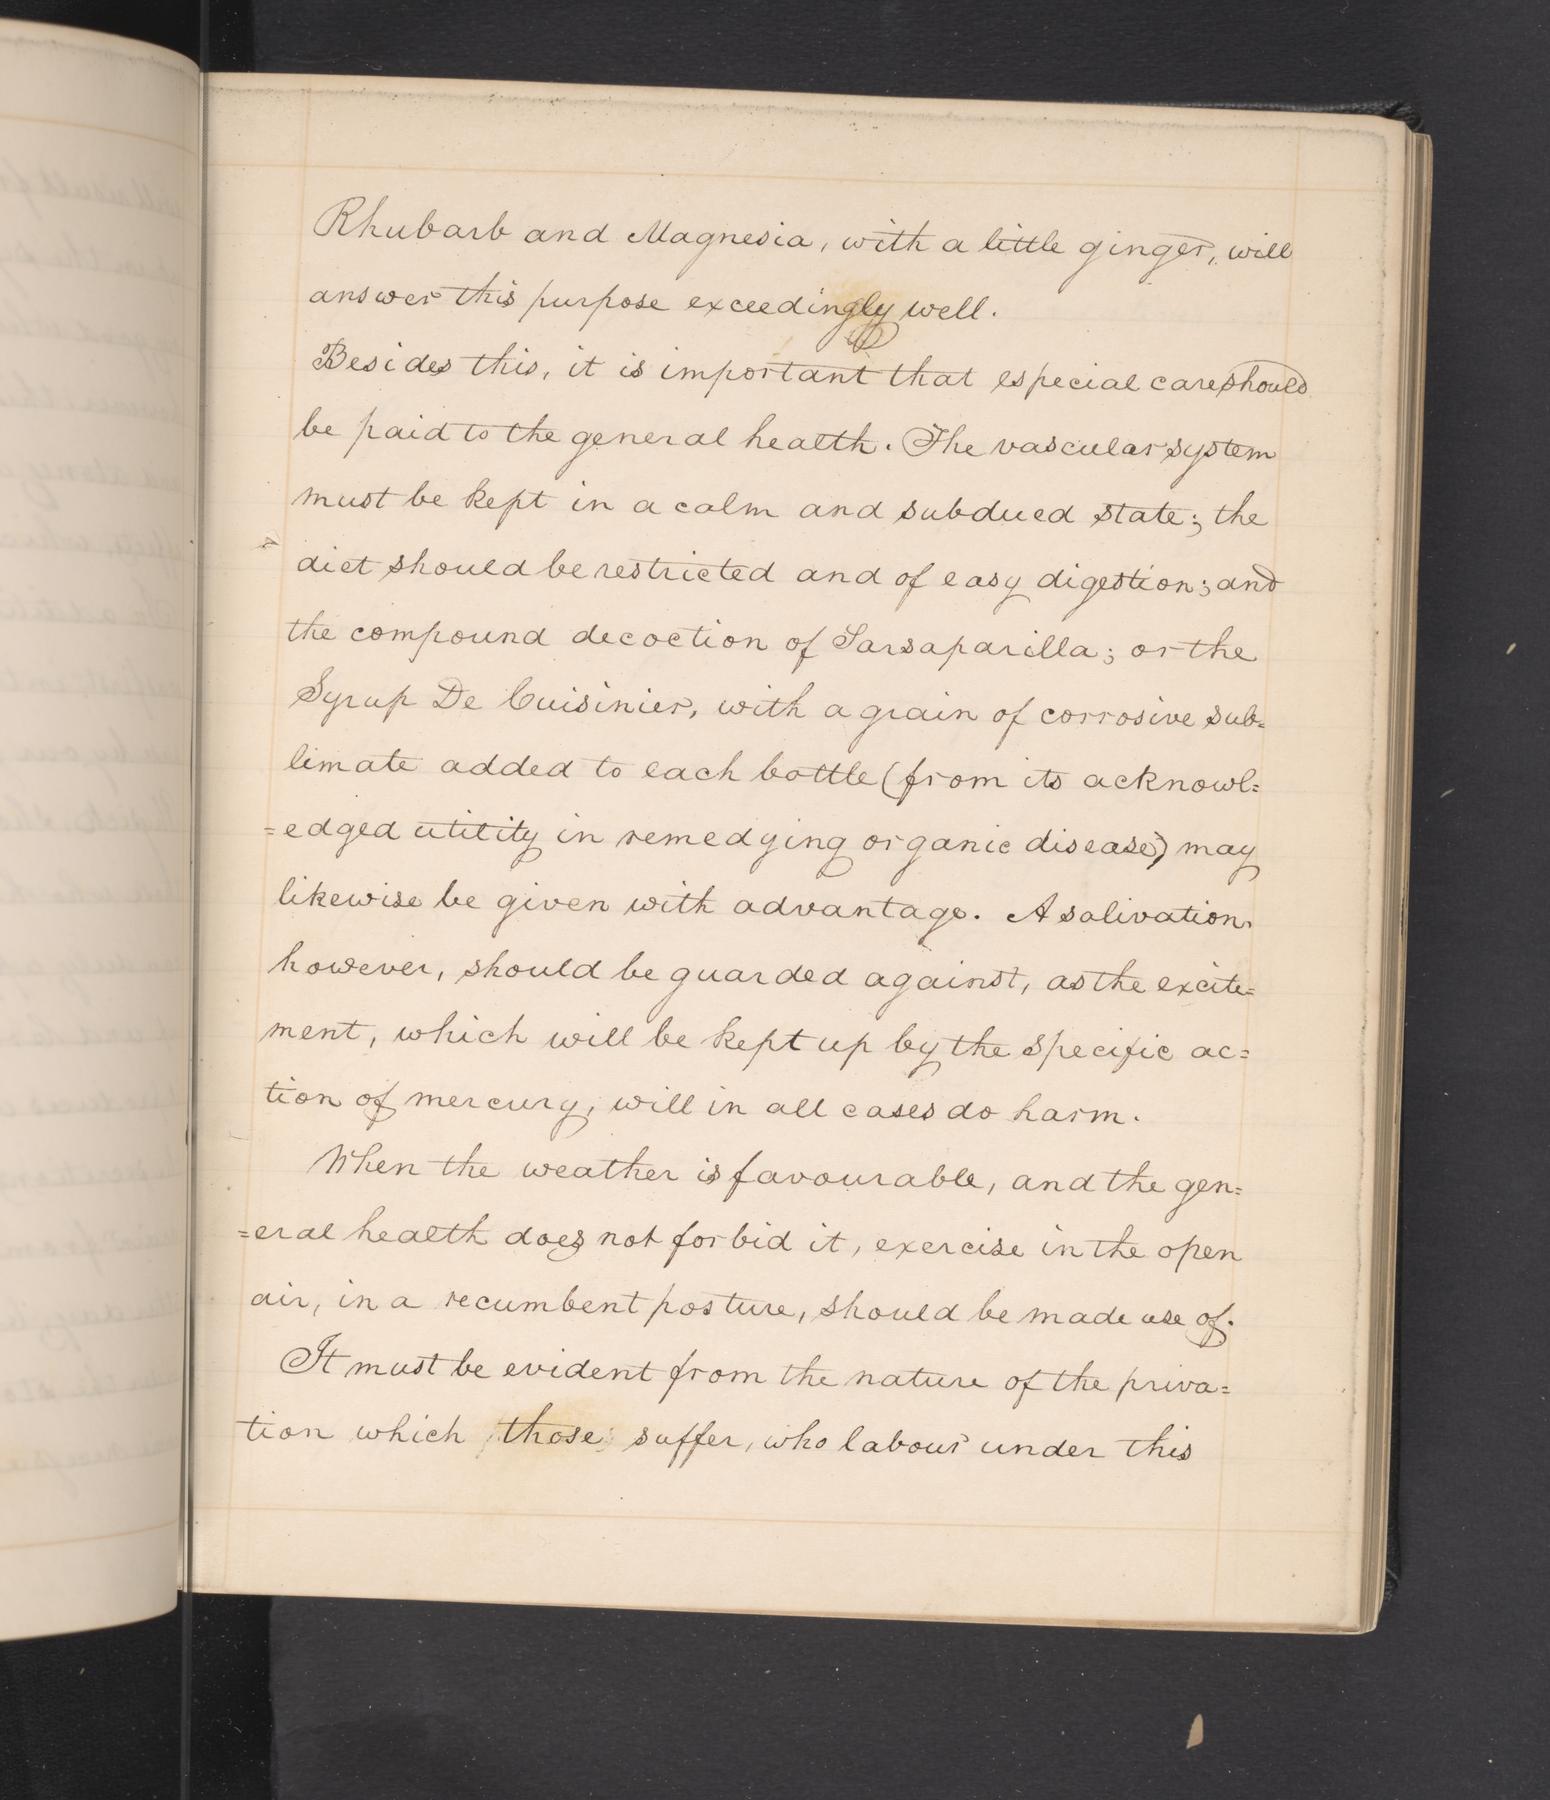 Rhubarb and Magnesia, with a little ginger, will
answer this purpose exceedingly well.
Besides this, it is important that especial care should
be paid to the general health. The vascular system
must be kept in a calm and subdued state; the
diet should be restricted and of easy digestion; and
the compound decoction of Sarsaparilla; or the
Syrup De Cuisinier, with a grain of corrosive sub=
limate added to each bottle (from its acknowl=
=edged utility in remedying organic disease) may
likewise be given with advantage. A salivation,
however, should be guarded against, as the excite=
ment, which will be kept up by the specific ac=
tion of mercury, will in all cases do harm.
When the weather is favourable, and the gen=
=eral health does not forbid it, exercise in the open
air, in a recumbent posture, should be made use of.
It must be evident from the nature of the priva=
tion which those suffer, who labour under this